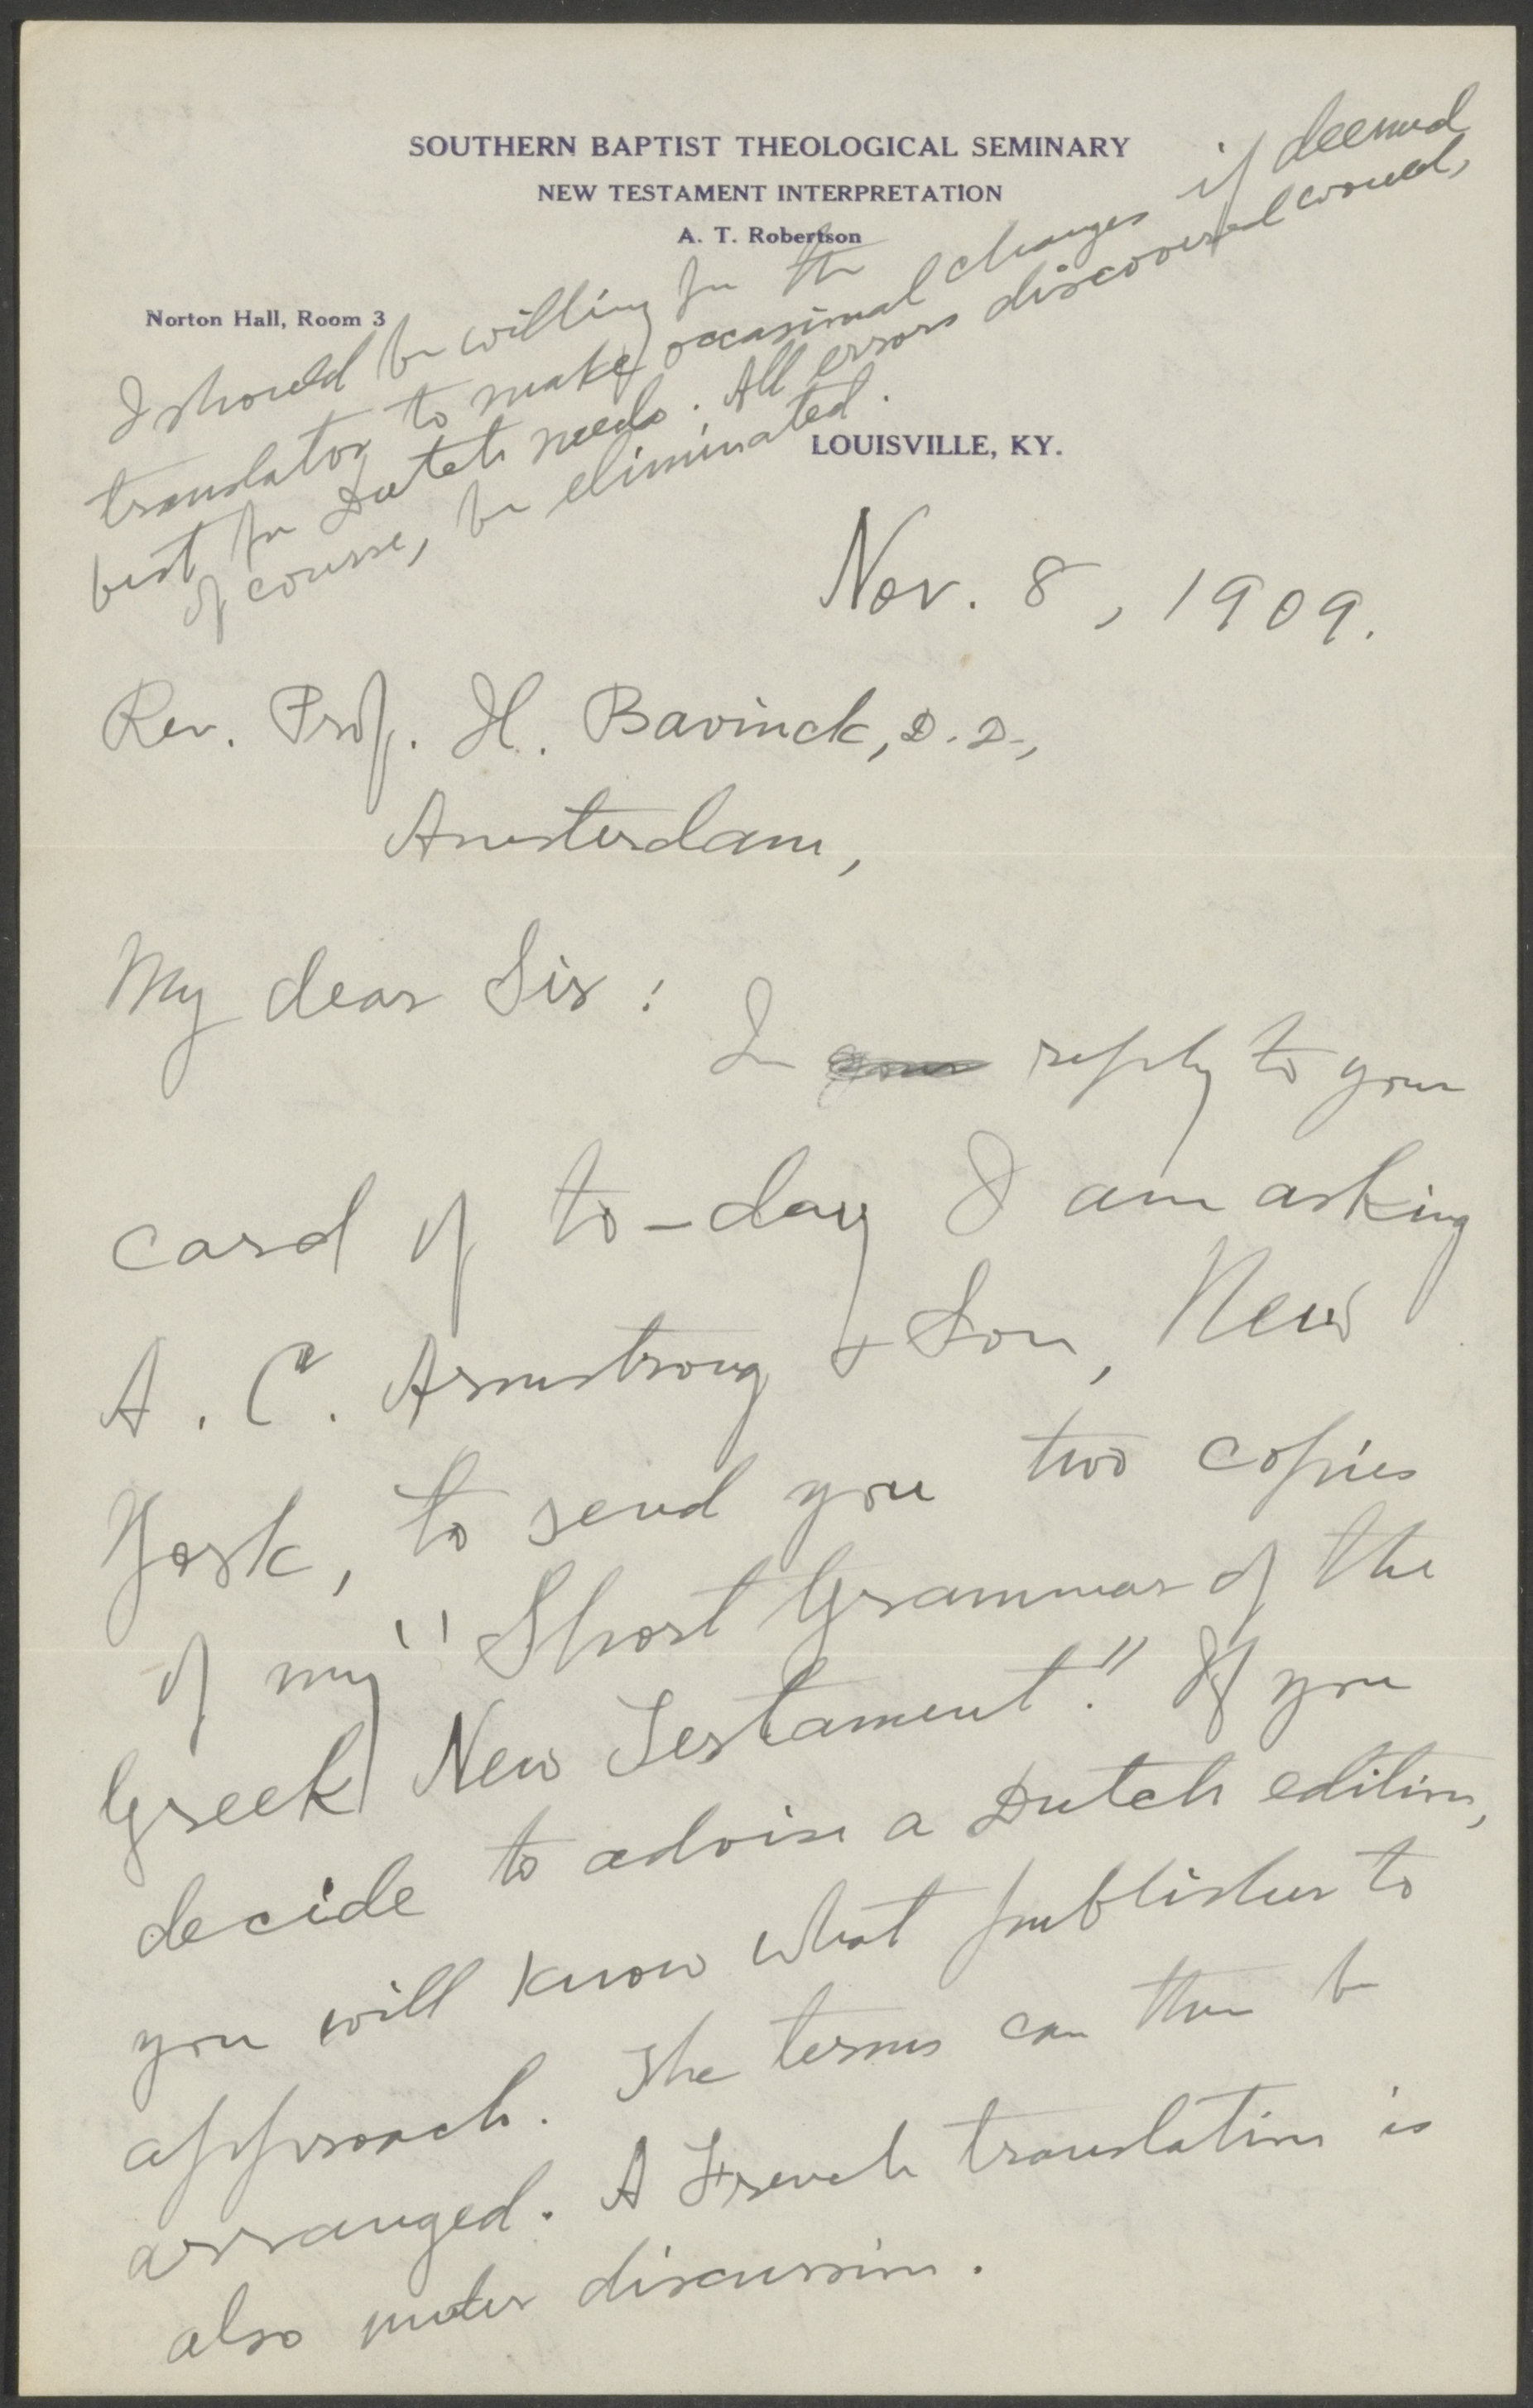 SOUTHERN BAPTIST THEOLOGICAL SEMINARY
NEW TESTAMENT INTERPRETATION
A. T. Robertson
Norton Hall, Room 3
I should be willing for the
translator to make occasional changes if deemed
best for Dutch needs. All errors discovered would,
of course, be eliminated.
LOUISVILLE, KY.
Nov. 8, 1909.
Rev. Prof. H. Bavinck, D.D.,
Amsterdam,
My dear Sir:
In reply to your
card of to-day I am asking
A. C. Armstrong & Son, New
York, to send you two copies
of my "Short Grammar of the
Greek New Testament." If you
decide to advise a Dutch edition,
you will know what publisher to
approach. The terms can then be
arranged. A French translation is
also under discussion.